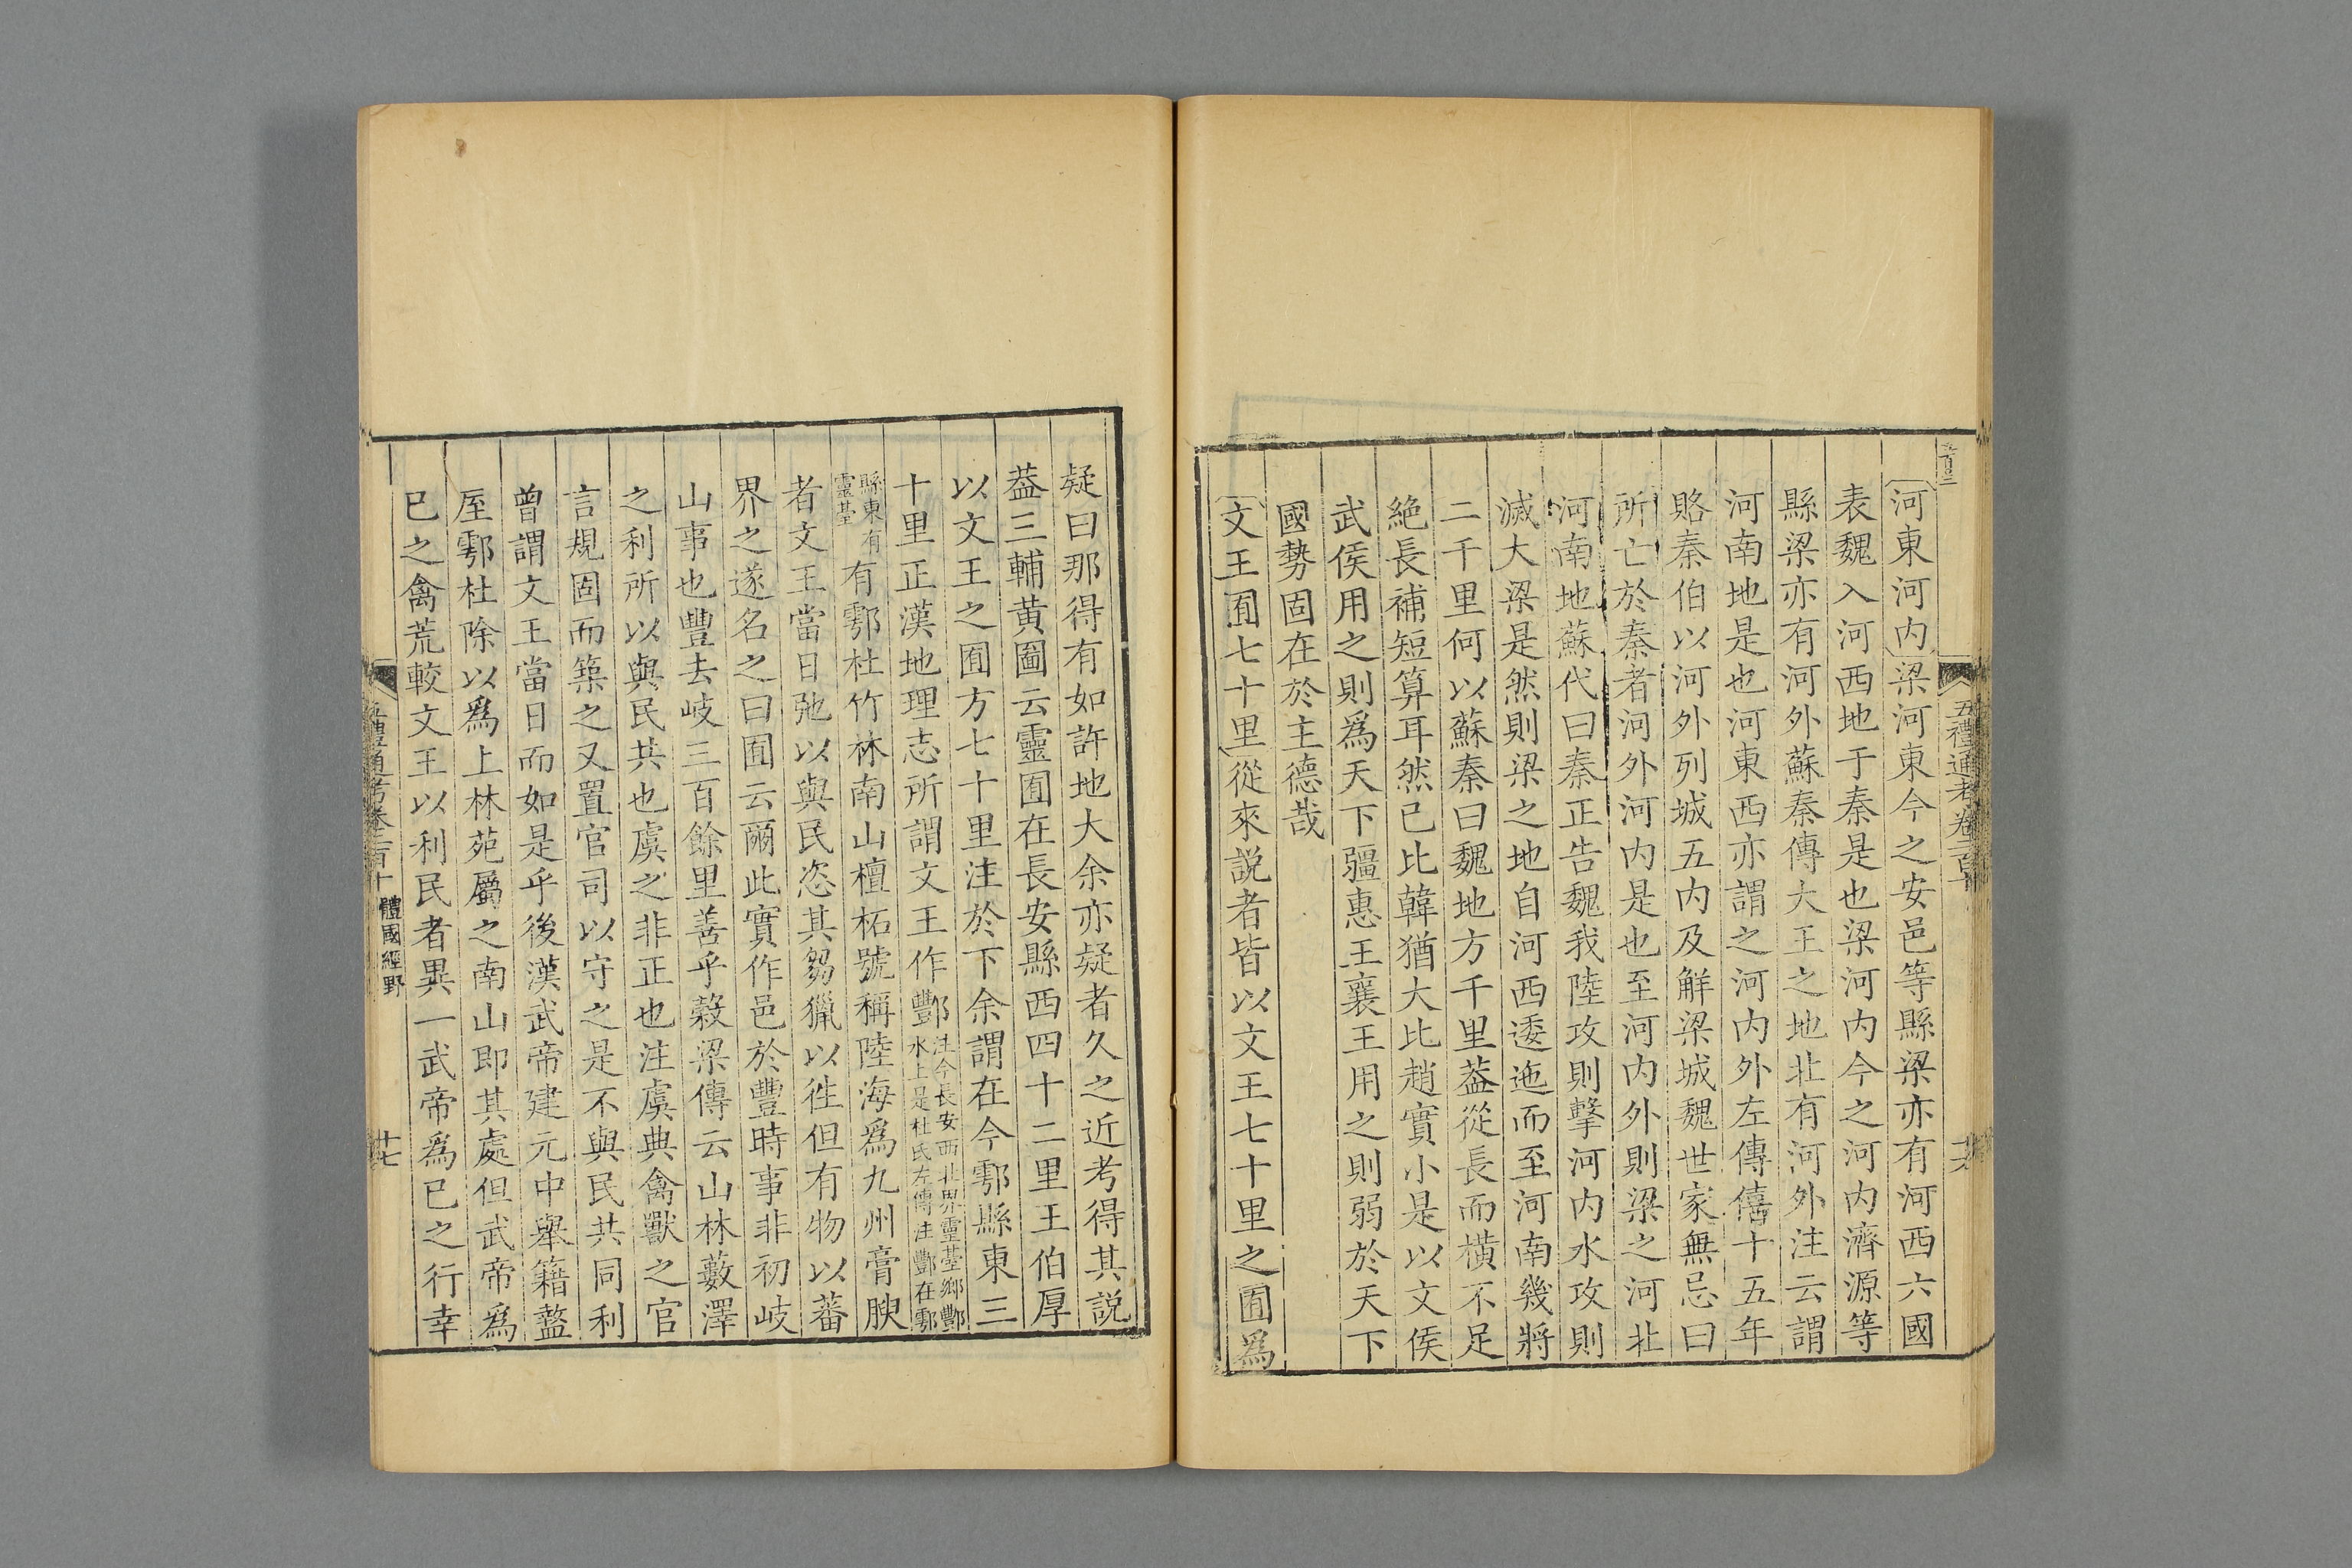 河東河内梁河東今之安邑等縣梁亦有河西六國
表魏入河西地于秦是也梁河内今之河内濟源等
縣梁亦有河外蘇秦傳大王之地北有河外注云謂
河南地是也河東西亦謂之河内外左傳僖十五年
賂秦伯以河外列城五内及解梁城魏世家無忌曰
所亡於秦者河外河内是也至河内外則梁之河北
河南地蘇代曰秦正告魏我陸攻則擊河内水攻則
滅大梁是然則梁之地自河西逶迤而至河南幾將
二千里何以蘇秦曰魏地方千里葢從長而橫不足
絶長補短算耳然已比韓猶大比趙實小是以文侯
武侯用之則爲天下疆惠王襄王用之則弱於天下
國勢固在於主德哉
文王囿七十里從來説者皆以文王七十里之囿爲
疑曰那得有如許地大余亦疑者久之近考得其説
葢三輔黄圖云靈囿在長安縣西四十二里王伯厚
以文王之囿方七十里注於下余謂在今鄠縣東三
十里正漢地理志所謂文王作酆注今長安西北界靈䑓鄉酆水上是杜氏左傳注酆在鄠
縣東有靈䑓有鄠杜竹林南山檀柘號稱陸海爲九州膏腴
者文王當日弛以與民恣其芻獵以徃但有物以蕃
界之遂名之曰囿云爾此實作邑於豐時事非初岐
山事也豐去岐三百餘里善乎榖梁傳云山林藪澤
之利所以與民共也虞之非正也注虞典禽獸之官
言規固而築之又置官司以守之是不與民共同利
曾謂文王當日而如是乎後漢武帝建元中舉籍盩
厔鄠杜除以爲上林苑屬之南山即其處但武帝爲
已之禽荒較文王以利民者異一武帝爲已之行幸
五禮通考卷二百十 體國經野
十七